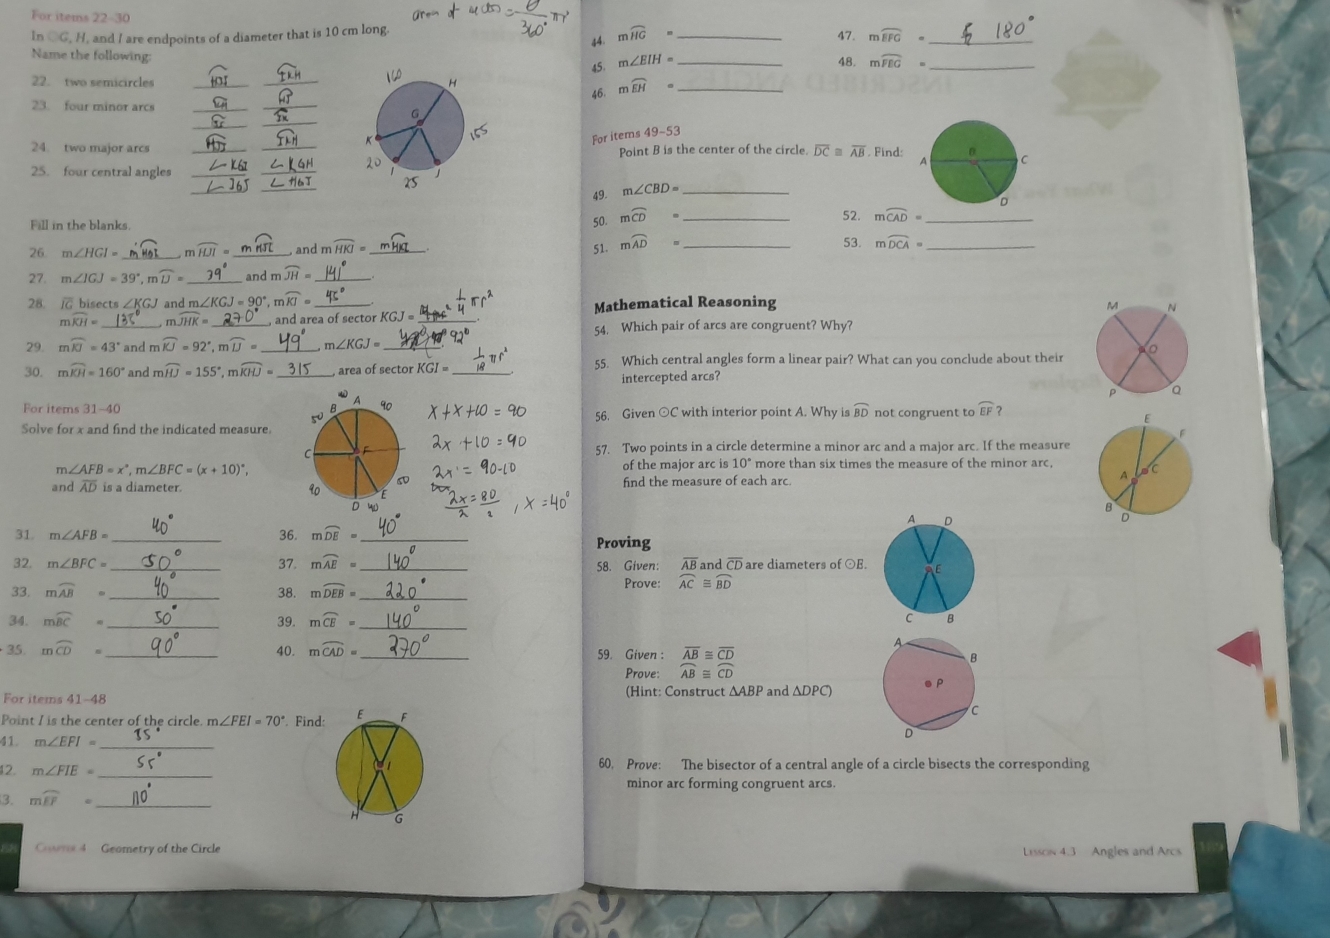 For items 22–30
area of sector = θ/360° πr²
In ⊙G, H, and I are endpoints of a diameter that is 10 cm long.
Name the following:
22. two semicircles
23. four minor arcs
24. two major arcs
25. four central angles ∠KGI ∠KGH
∠JGI ∠HGJ
160 H
G
K 155
20 I J
25
Fill in the blanks.
26. m∠HGI = ____, mHJI = ____, and mHKI = ____.
27. m∠IGJ = 39°, mIJ = 39° and mJH = 141°.
28. IG bisects ∠KGJ and m∠KGJ = 90°, mKI = 45°
mKH = 135°, mJHK = 270°, and area of sector KGJ = 1/4 πr².
29. mKI = 43° and mKJ = 92°, mIJ = 49°, m∠KGJ = 92°
30. mKH = 160° and mHJ = 155°, mKHJ = 315, area of sector KGI = 1/18 πr².
For items 31–40
Solve for x and find the indicated measure.
m∠AFB = x°, m∠BFC = (x + 10)°,
and AD is a diameter.
40 A 90
50 B
C F
90 50
D 40 E
x + x + 10 = 90
2x + 10 = 90
2x = 90-10
2x/2 = 80/2, x = 40°
31. m∠AFB = 40°
32. m∠BFC = 50°
33. mAB = 40°
34. mBC = 50°
35. mCD = 90°
36. mDE = 40°
37. mAE = 140°
38. mDEB = 220°
39. mCE = 140°
40. mCAD = 270°
For items 41–48
Point I is the center of the circle. m∠FEI = 70°. Find:
41. m∠EFI = 35°
42. m∠FIE = 55°
3. mEF = 110°
E F
I
H G
Chapter 4 Geometry of the Circle
44. mHG = ____
45. m∠EIH = ____
46. mEH = ____
47. mEFG = 180°
48. mFEG = ____
For items 49–53
Point B is the center of the circle. DC ≅ AB. Find:
A B C
D
49. m∠CBD = ____
50. mCD = ____
51. mAD = ____
52. mCAD = ____
53. mDCA = ____
Mathematical Reasoning
54. Which pair of arcs are congruent? Why?
M N
O
P Q
55. Which central angles form a linear pair? What can you conclude about their
intercepted arcs?
56. Given ⊙C with interior point A. Why is BD not congruent to EF?
57. Two points in a circle determine a minor arc and a major arc. If the measure
of the major arc is 10° more than six times the measure of the minor arc,
find the measure of each arc.
E F
A C
B D
Proving
58. Given: AB and CD are diameters of ⊙E.
Prove: AC ≅ BD
A D
E
C B
59. Given: AB ≅ CD
Prove: AB ≅ CD
(Hint: Construct ΔABP and ΔDPC)
A B
P
C
D
60. Prove: The bisector of a central angle of a circle bisects the corresponding
minor arc forming congruent arcs.
Lesson 4.3 Angles and Arcs